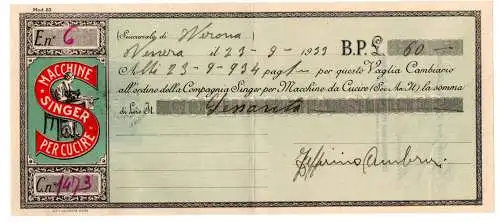 Mod. 63
E. n° 6
(Succursale di Verona
il 23-9-1933 B.P.£. 60
Alli 23-9-934 pag per questo Vaglia Cambiario
all'ordine della Compagnia Singer per Macchine da Cucire (Soc. An. It) la somma
di Lire It. Sessanta
MACCHINE
SINGER
PER CUCIRE
C. n° 1473